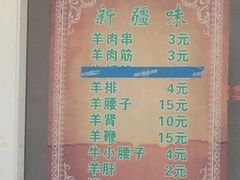 新疆味
羊肉串 3元
羊肉筋 3元
羊排 4元
羊腰子 15元
羊肾 10元
羊鞭 15元
牛小腰子 4元
羊肝 2元